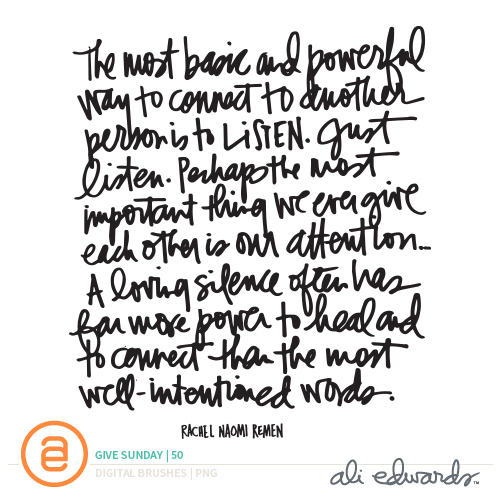 The most basic and powerful
way to connect to another
person is to LISTEN. Just
listen. Perhaps the most
important thing we ever give
each other is our attention...
A loving silence often has
far more power to heal and
to connect than the most
well-intentioned words.
RACHEL NAOMI REMEN
GIVE SUNDAY | 50
DIGITAL BRUSHES | PNG
ali edwards™